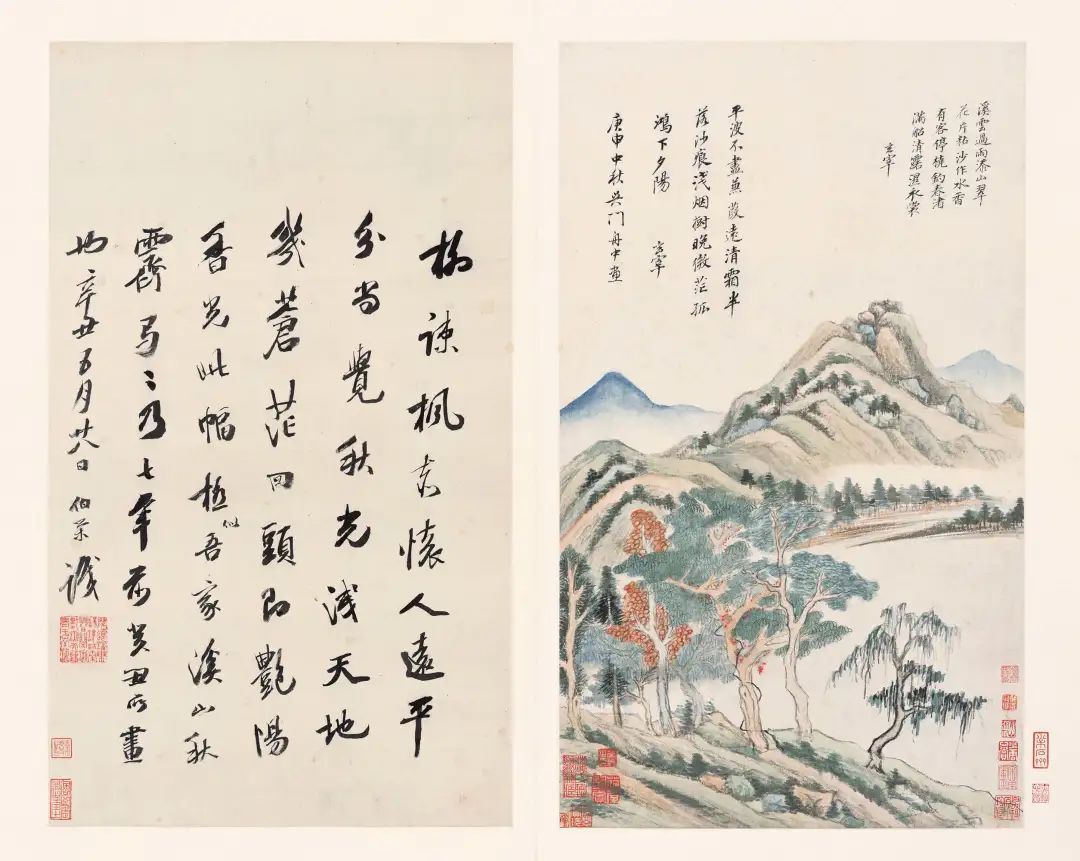 溪雲過雨添山翠
花片粘沙作水香
有客停橈釣春渚
滿船清露濕衣裳
玄宰
平波不盡蒹葭遠清霜半
落沙痕淺烟樹晚微茫孤
鴻下夕陽
玄宰
庚申中秋吳門舟中畫
柳疎楓老懷人遠平
分尚覺秋光淺天地
幾蒼茫回頭即艷陽
香光此幅極似吾家溪山秋
霽弓〻乃七年前癸丑所畫
也辛丑五月廿八日伯荣識